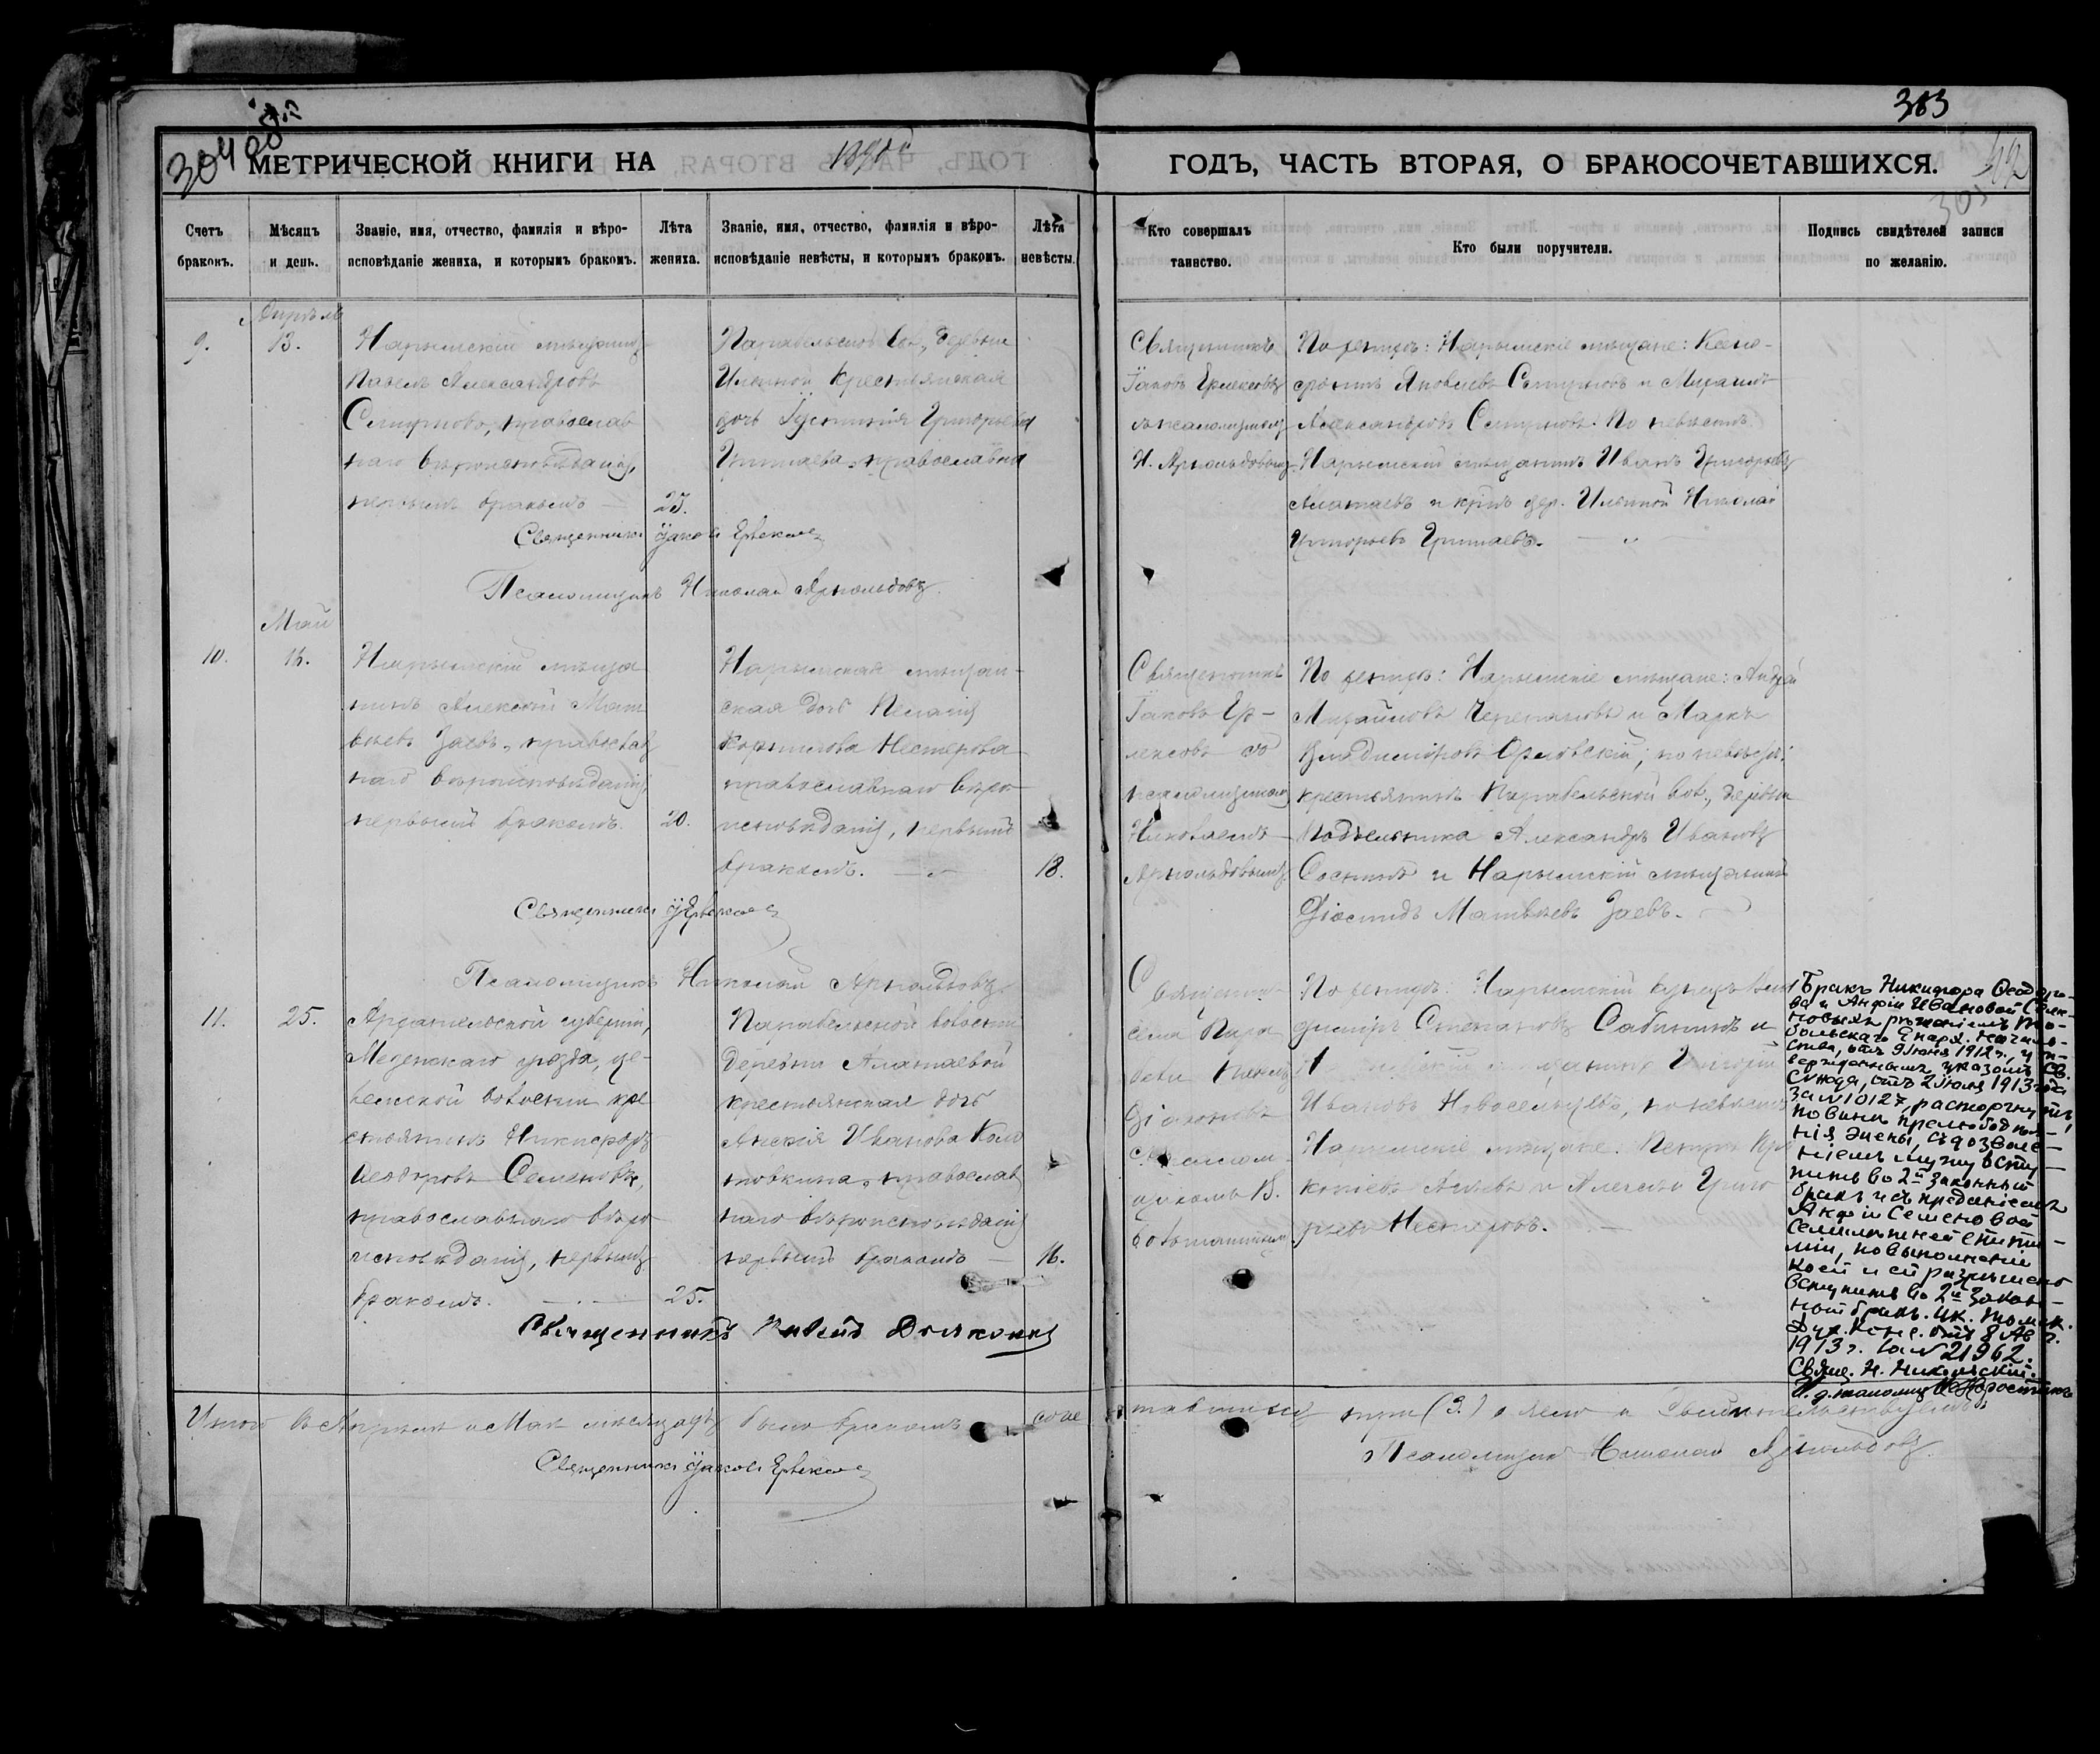 303
304
МЕТРИЧЕСКОЙ КНИГИ НА
ГОДЪ, ЧАСТЬ ВТОРАЯ, О БРАКОСОЧЕТАВШИХСЯ.
Счетъ браковъ.
Мѣсяцъ и день.
Званіе, имя, отчество, фамилія и вѣро-
исповѣданіе жениха, и которымъ бракомъ.
Лѣта жениха.
Званіе, имя, отчество, фамилія и вѣро-
исповѣданіе невѣсты, и которымъ бракомъ.
Лѣта невѣсты.
Кто совершалъ таинство.
Кто были поручители.
Подпись свидѣтелей записи по желанію.
9.
Апрѣль
13.
Нарымскій мѣщанинъ
Павелъ Александровъ
Смирновъ, православ
наго вѣроисповѣданія,
первымъ бракомъ
25.
Парабельской вол., деревни
Ильиной крестьянская
дочь Іустинія Григорьева
православна
Священникъ
Іаковъ
съ псаломщикомъ
Н. Арнольдовымъ
По женихѣ: Нарымскіе мѣщане:
Яковлевъ Смирновъ и Михаилъ
Александровъ Смирновъ. По невѣстѣ
Нарымскій мѣщанинъ Иванъ Григорьевъ
Алатаевъ и кр-нъ дер. Ильиной Николай
Григорьевъ
Священникъ Іаковъ
Псаломщикъ Николай Арнольдовъ.
Май
10.
16.
Нарымскій мѣща
нинъ Алексѣй Мат
вѣевъ Заевъ, православ
наго вѣроисповѣданія,
первымъ бракомъ.
20.
Нарымская мѣщан-
ская дочь Пелагія
Корнилова Нестерова
православнаго вѣро
исповѣданія, первымъ
бракомъ.
18.
Священникъ
Іаковъ
со
псаломщикомъ
Николаемъ
Арнольдовымъ
По женихѣ: Нарымскіе мѣщане: Андрей
Михайловъ Черепановъ и Маркъ
Владиміровъ Орловскій; по невѣстѣ:
крестьянинъ Парабельской вол., деревни
Подъельника Александръ Ивановъ
Соснинъ и Нарымскій мѣщанинъ
Діомидъ Матвѣевъ Заевъ.
Священникъ
Псаломщикъ Николай Арнольдовъ
11.
25.
Архангельской губерніи,
Мезенскаго уѣзда,
волости кре
стьянинъ Никифоръ
Ѳеодоровъ Семеновъ,
православнаго вѣро
исповѣданія, первымъ
бракомъ.
25.
Парабельской волости
деревни Алатаевой
крестьянская дочь
Анфія Иванова
православ
наго вѣроисповѣданія
первымъ бракомъ
16.
Священникъ
села Пара
бели Павелъ
Діаконовъ
съ псалом-
щикомъ В.
По женихѣ: Нарымскій купецъ Вла
диміръ Степановъ Сабининъ и
мѣщанинъ Григорій
Ивановъ Новосельцевъ, по невѣстѣ
Нарымскіе мѣщане. Петръ Про
копіевъ и Алексѣй Григо
рьевъ Нестеровъ.
Священникъ Павелъ Діаконовъ
Бракъ Никифора Ѳеодоро-
ва и Анфіи Ивановой Семе-
новыхъ рѣшеніемъ То-
больскаго Епарх. Началь-
ства, отъ 9 Іюня 1912 г., ут-
вержденнымъ указомъ Св.
Сѵнода, отъ 2 Іюля 1913 года
за № 10127, расторгнутъ,
по винѣ прелюбодѣя-
нія жены, съ дозволе-
ніемъ мужу всту-
пить во 2й законный
бракъ и съ преданіемъ
Анфіи Семеновой
семилѣтней епити-
міи, по выполненіи
коей и ей разрѣшено
вступить во 2й закон-
ный бракъ. Ук. Томск.
Дух. Конс. отъ 8 Авг.
1913 г. за № 21962.
Свящ. Н. Никольскій.
Итого въ Апрѣлѣ и Маѣ мѣсяцахъ было бракомъ соче
тавшихся три (3.) о чемъ и свидѣтельствуемъ:
Священникъ Іаковъ
Псаломщикъ Николай Арнольдовъ.